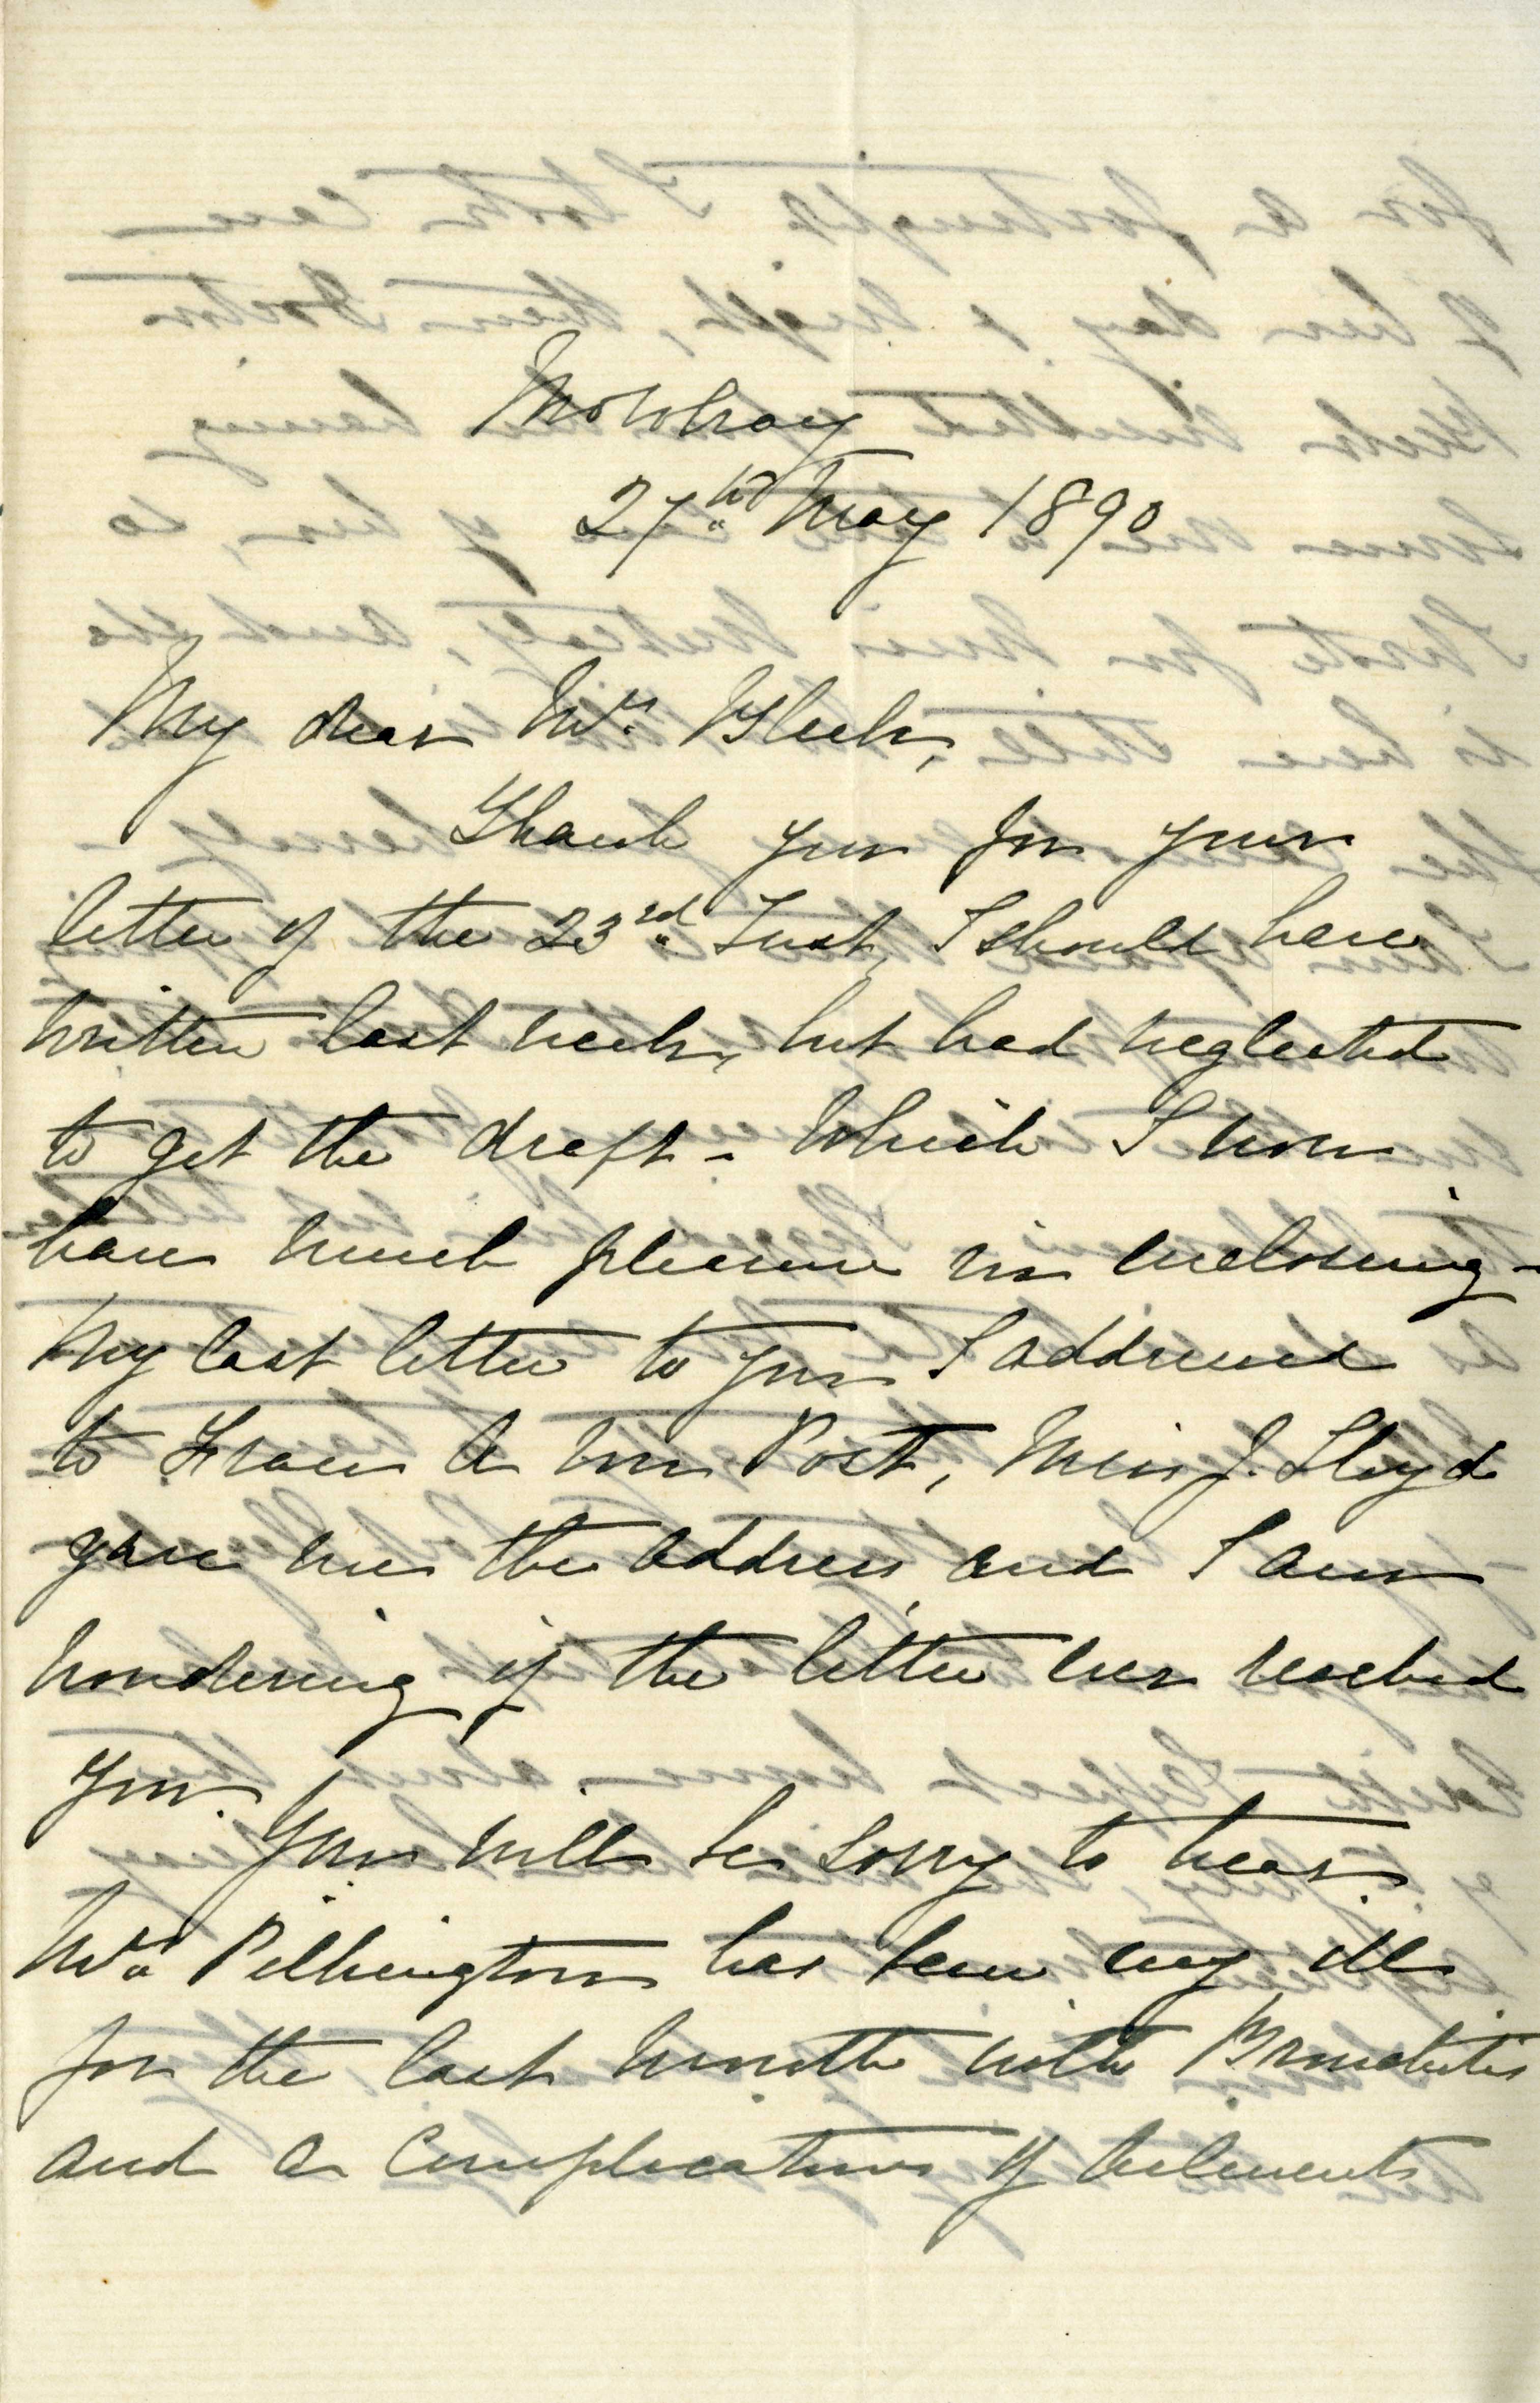 Mowbray
27th May 1890
My dear Mrs Bleek,
Thank you for your
letter of the 23rd Inst, I should have
written last week, but had neglected
to get the draft - which I now
have much pleasure in enclosing -
My last letter to you I addressed
to Post, Miss J. Lloyd
gave me the address and I am
wondering if the letter ever reached
you. You will be sorry to hear
Mrs Pilkington has been very ill
for the last month with Bronchitis
and a Complication of ailments